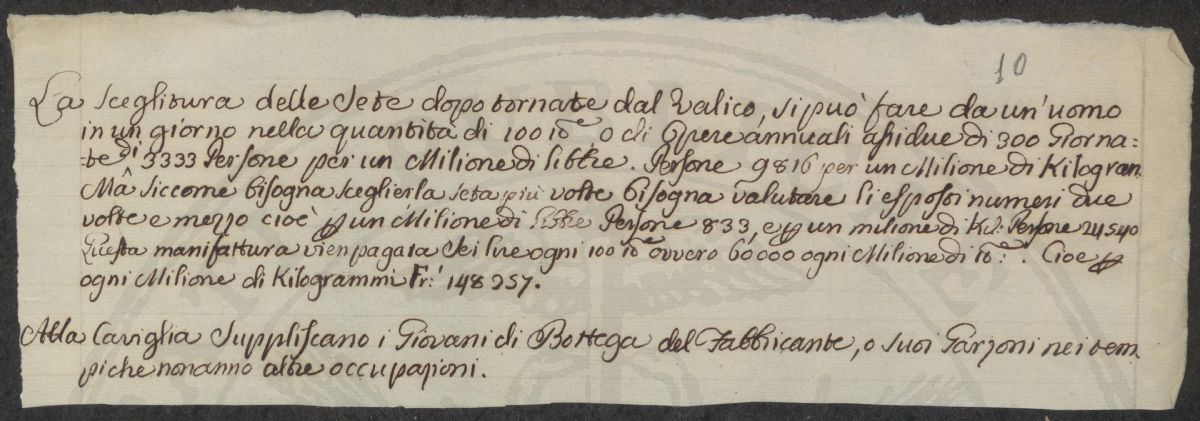 10
La sceglitura delle Sete dopo tornate dal Valico, si può fare da un'uomo
in un giorno nella quantità di 100 lb.e o di Opere annuali assidue di 300 Giorna=
=te di 3333 Persone per un Milione di libbre. Persone 9816 per un Milione di Kilogram.
Mà siccome bisogna sceglier la seta più volte bisogna valutare li esposti numeri due
volte e mezzo cioè p un Milione di libbre Persone 833, e p un milione di Kil. Persone 24540
Questa manifattura vien pagata sei lire ogni 100 lb.e ovvero 60000 ogni Milione di lb.e. Cioe p
ogni Milione di Kilogrammi Fr.i 148257.
Alla Caviglia Suppliscano i Giovani di Bottega del Fabbricante, o suoi Garzoni nei tem
pi che non anno altre occupazioni.